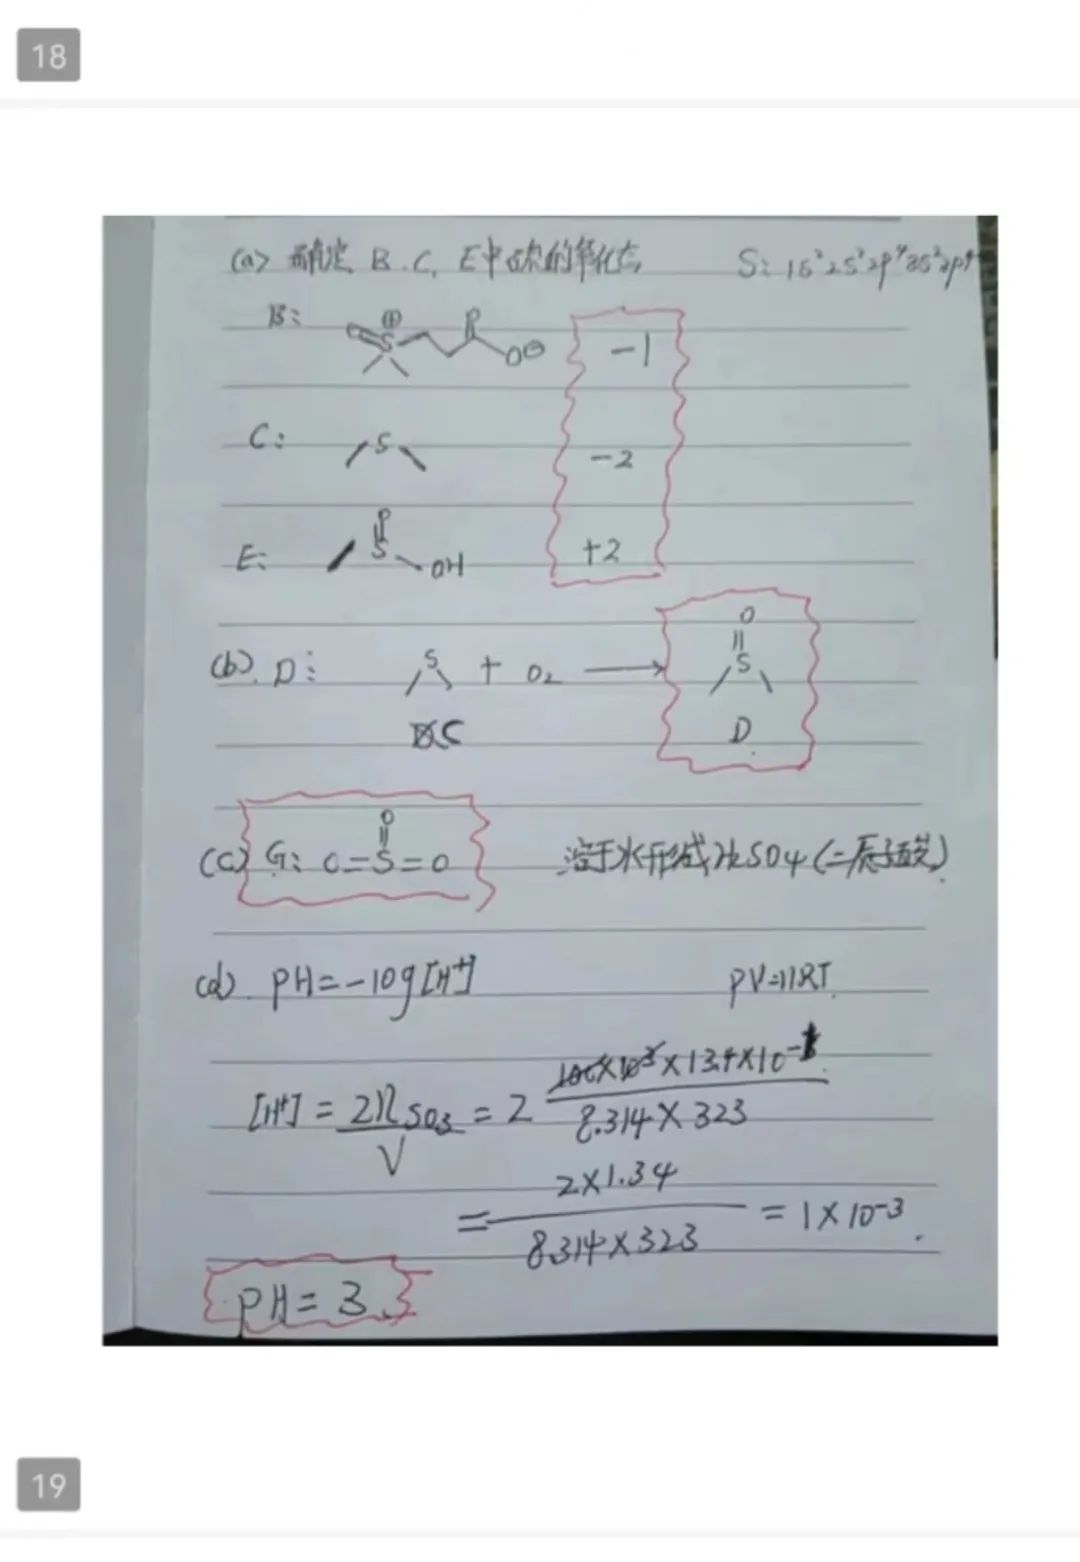 18
(a) 确定 B.C. E中硫的氧化态 S: 1s²2s²2p⁴3s²3p⁴
B: ⊕ S O O⊖ -1
C: S -2
E: O S OH +2
(b). D: S + O₂ ⟶ O S
C D.
(c) G: O=S=O O 溶于水形成H₂SO4(二质子酸)
(d). PH=-log[H⁺] PV=nRT.
[H⁺] = 2n SO₃ / V = 2 100×10³×13.4×10⁻ / 8.314×323
= 2×1.34 / 8.314×323 = 1×10⁻³.
PH=3.
19